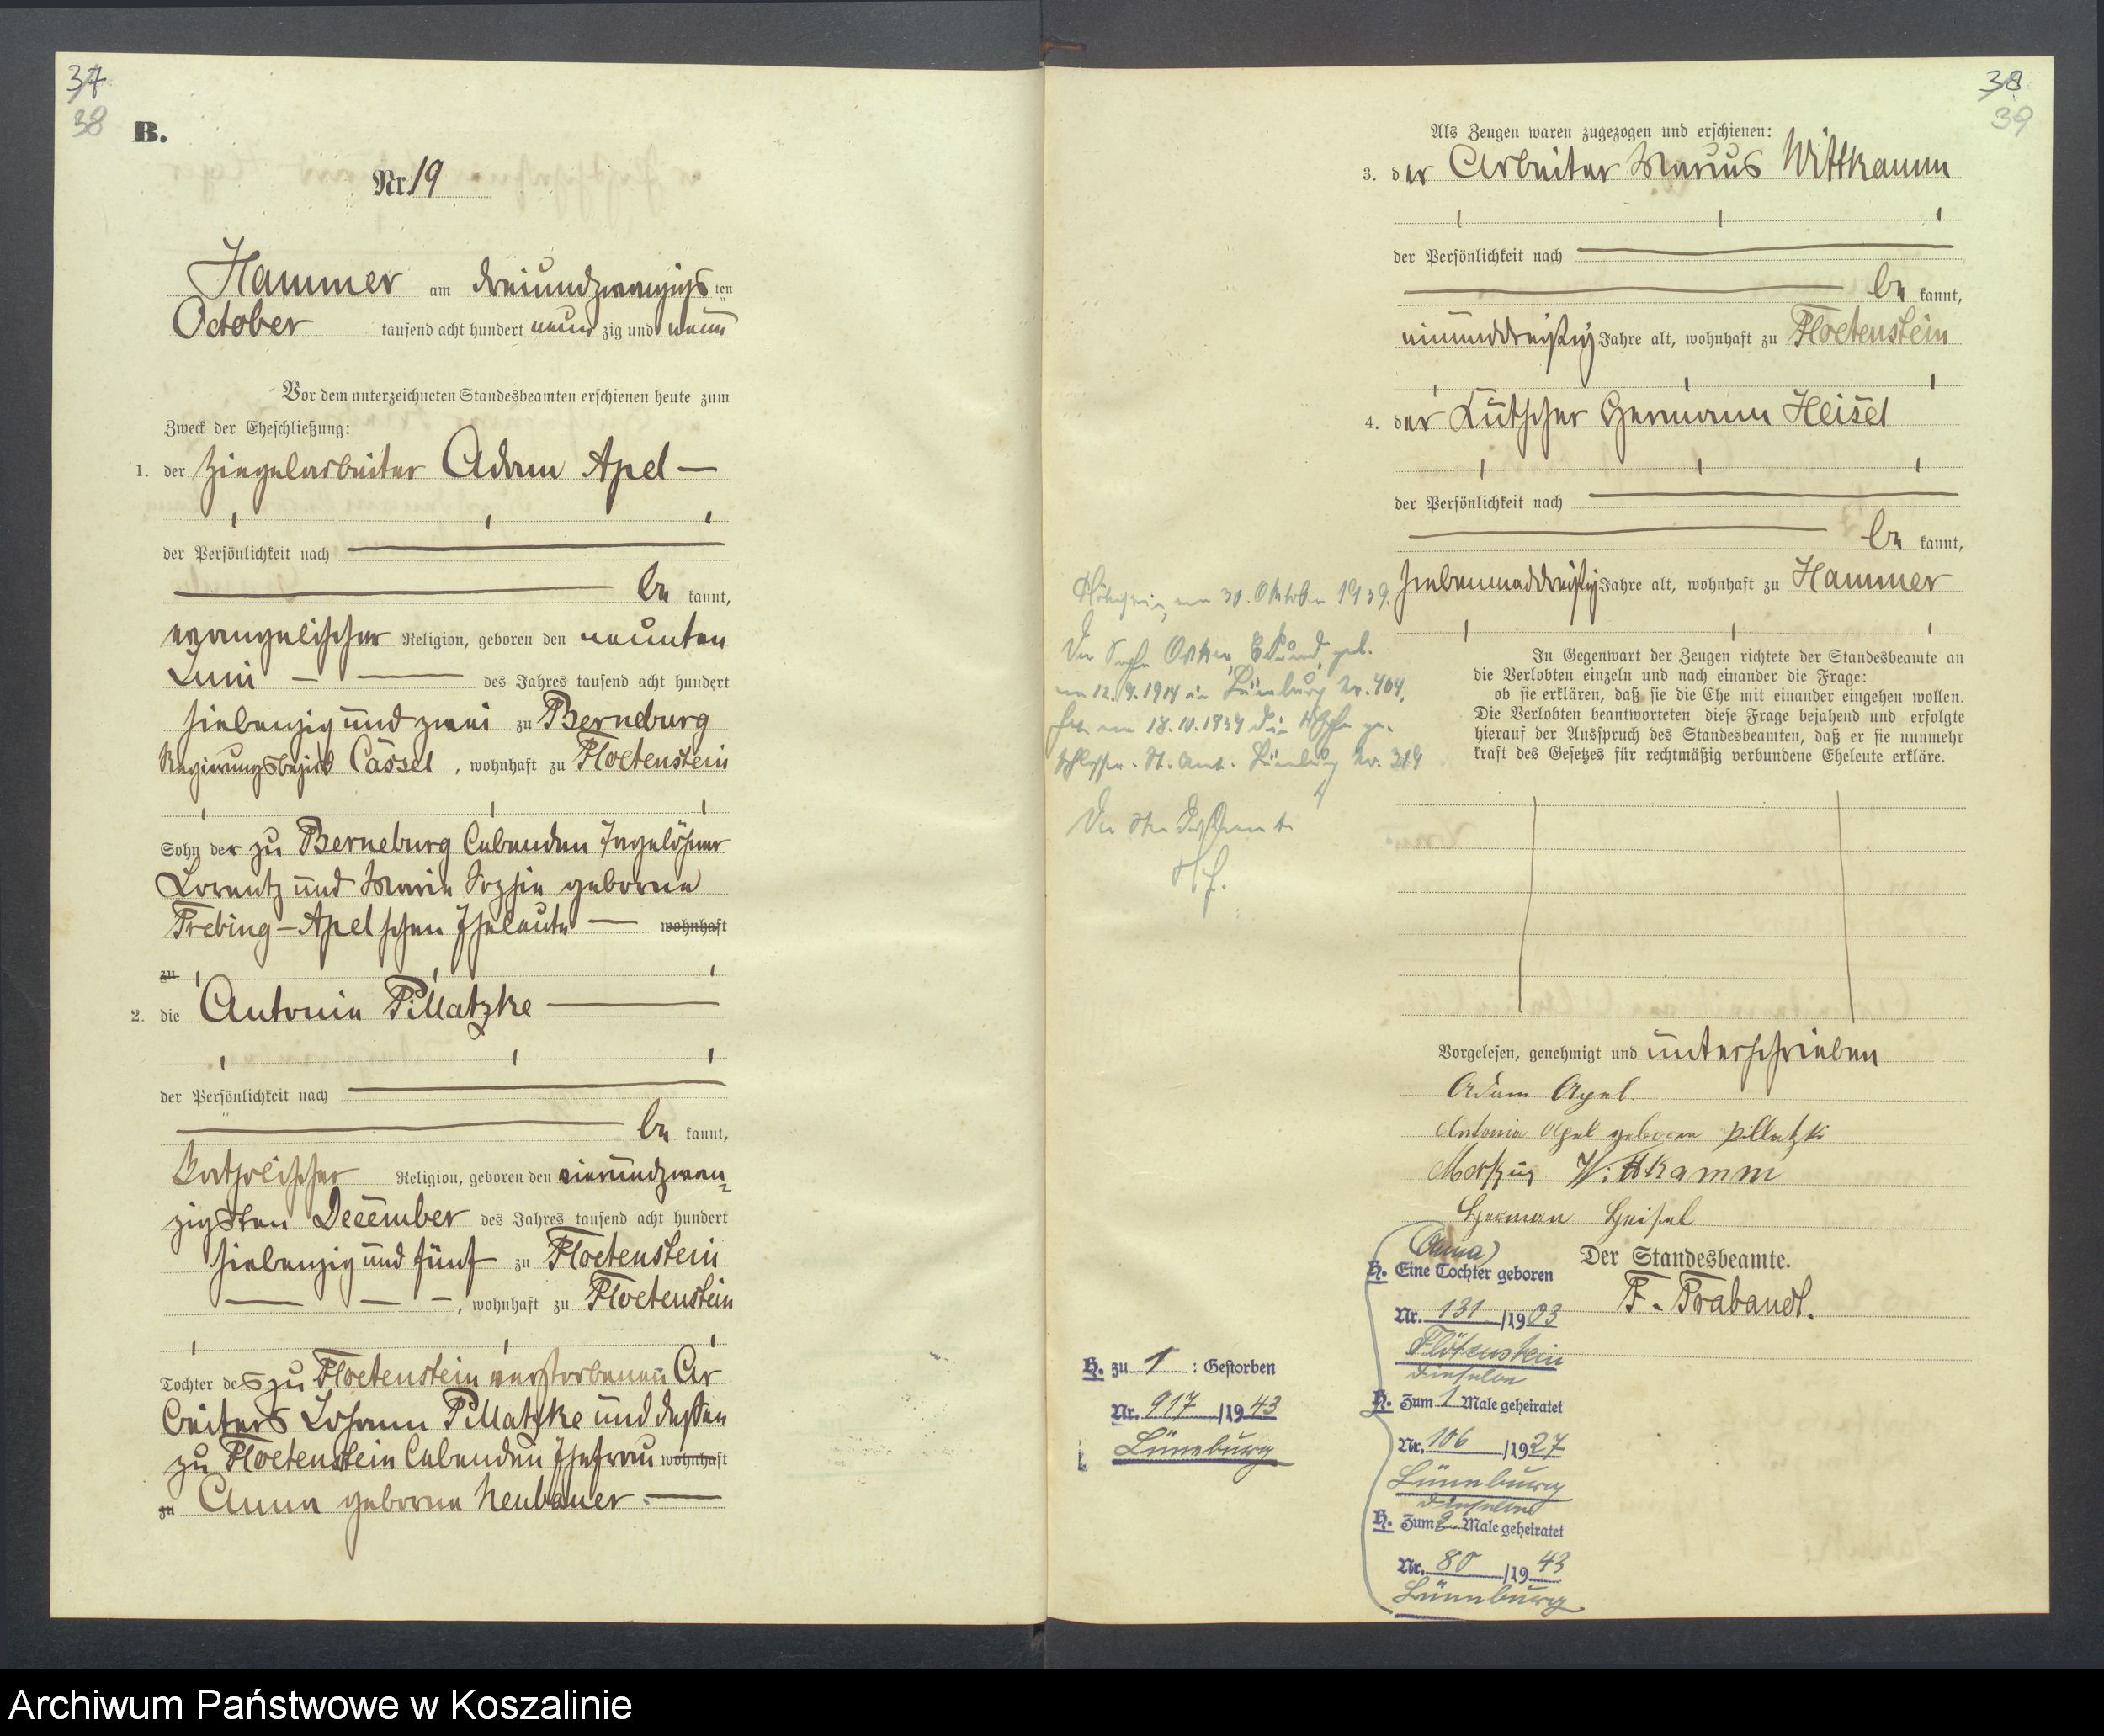 37
38
B.
Nr. 19
Hammer am dreiundzwanzigsten
October tausend acht hundert neunzig und neun
Vor dem unterzeichneten Standesbeamten erschienen heute zum
Zweck der Eheschließung:
1. der Ziegelarbeiter Adam Apel —
der Persönlichkeit nach
be kannt,
evangelischer Religion, geboren den neunten
Juni — — des Jahres tausend acht hundert
siebenzig und zwei zu Berneburg
Regierungsbezirk Cassel, wohnhaft zu Floetenstein
Sohn der zu Berneburg lebenden Tagelöhner
Lorentz und Marie Sophie geborne
Trebing-Apelschen Eheleute — wohnhaft
zu
2. die Antonie Pillatzke —
der Persönlichkeit nach
be kannt,
katholischer Religion, geboren den vierundzwan-
zigsten December des Jahres tausend acht hundert
siebenzig und fünf zu Floetenstein
— — —, wohnhaft zu Floetenstein
Tochter des zu Floetenstein verstorbenen Ar
beiters Johann Pillatzke und dessen
zu Floetenstein lebenden Ehefrau wohnhaft
zu Anna geborne Neubauer. —
38
39
Als Zeugen waren zugezogen und erschienen:
3. der Arbeiter Marcus Wittkamm
der Persönlichkeit nach
be kannt,
einunddreißig Jahre alt, wohnhaft zu Floetenstein
4. der Kutscher Hermann Heisel
der Persönlichkeit nach
be kannt,
siebenunddreißig Jahre alt, wohnhaft zu Hammer
In Gegenwart der Zeugen richtete der Standesbeamte an
die Verlobten einzeln und nach einander die Frage:
ob sie erklären, daß sie die Ehe mit einander eingehen wollen.
Die Verlobten beantworteten diese Frage bejahend und erfolgte
hierauf der Ausspruch des Standesbeamten, daß er sie nunmehr
kraft des Gesetzes für rechtmäßig verbundene Eheleute erkläre.
am 30. Oktober 1939.
Der Sohn Oskar geb.
am 12.9.1914 in Lüneburg Nr. 404,
hat am 18.10.1939 die Ehe ge-
schlossen. St. Amt. Lüneburg Nr. 319
Der Standesbeamte
Vorgelesen, genehmigt und unterschrieben
Adam Apel.
Antonia Apel geborene Pillatzki
Markus Wittkamm
Herman Heisel
Der Standesbeamte.
F. Trabandt.
(Anna)
H. Eine Tochter geboren
Nr. 131 /1903
Flötenstein
Dieselbe
H. Zum 1 Male geheiratet
Nr. 106 /1927
Lüneburg
Dieselbe
H. Zum 2. Male geheiratet
Nr. 80 /1943
Lüneburg
H. zu 1 : Gestorben
Nr. 917 /1943
Lüneburg
Archiwum Państwowe w Koszalinie